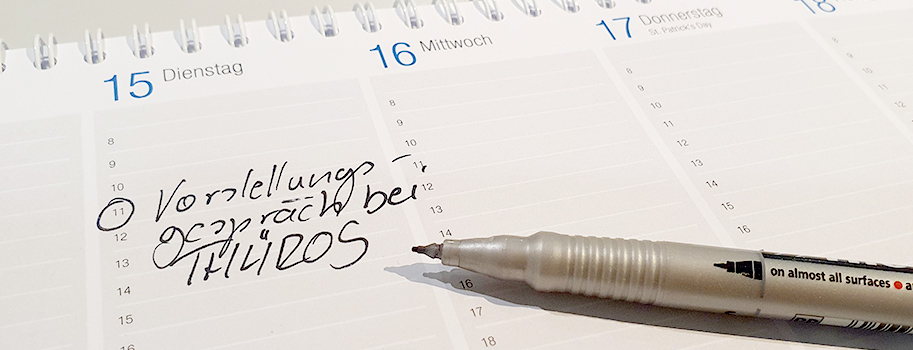 15 Dienstag
16 Mittwoch
17 Donnerstag
St. Patrick's Day
18
8
9
10
11
12
13
14
15
16
Vorstellungs-
gespräch bei
THÜROS
8
9
10
11
12
13
14
16
17
18
8
9
10
11
12
13
14
15
16
8
9
10
11
12
on almost all surfaces